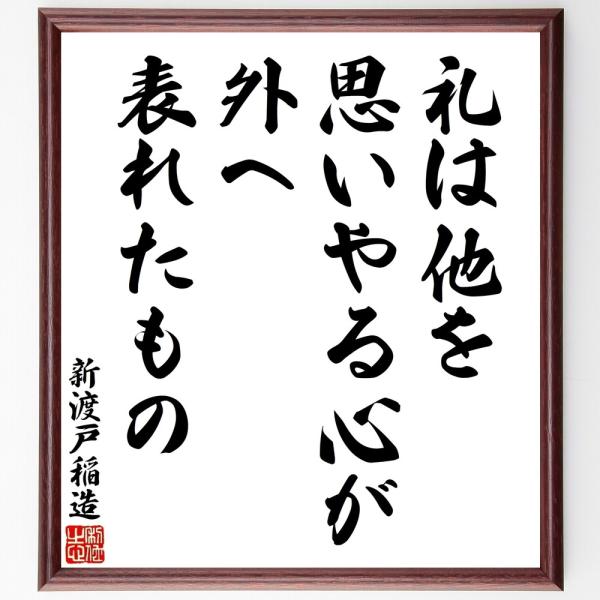 礼は他を
思いやる心が
外へ
表れたもの
新渡戸稲造